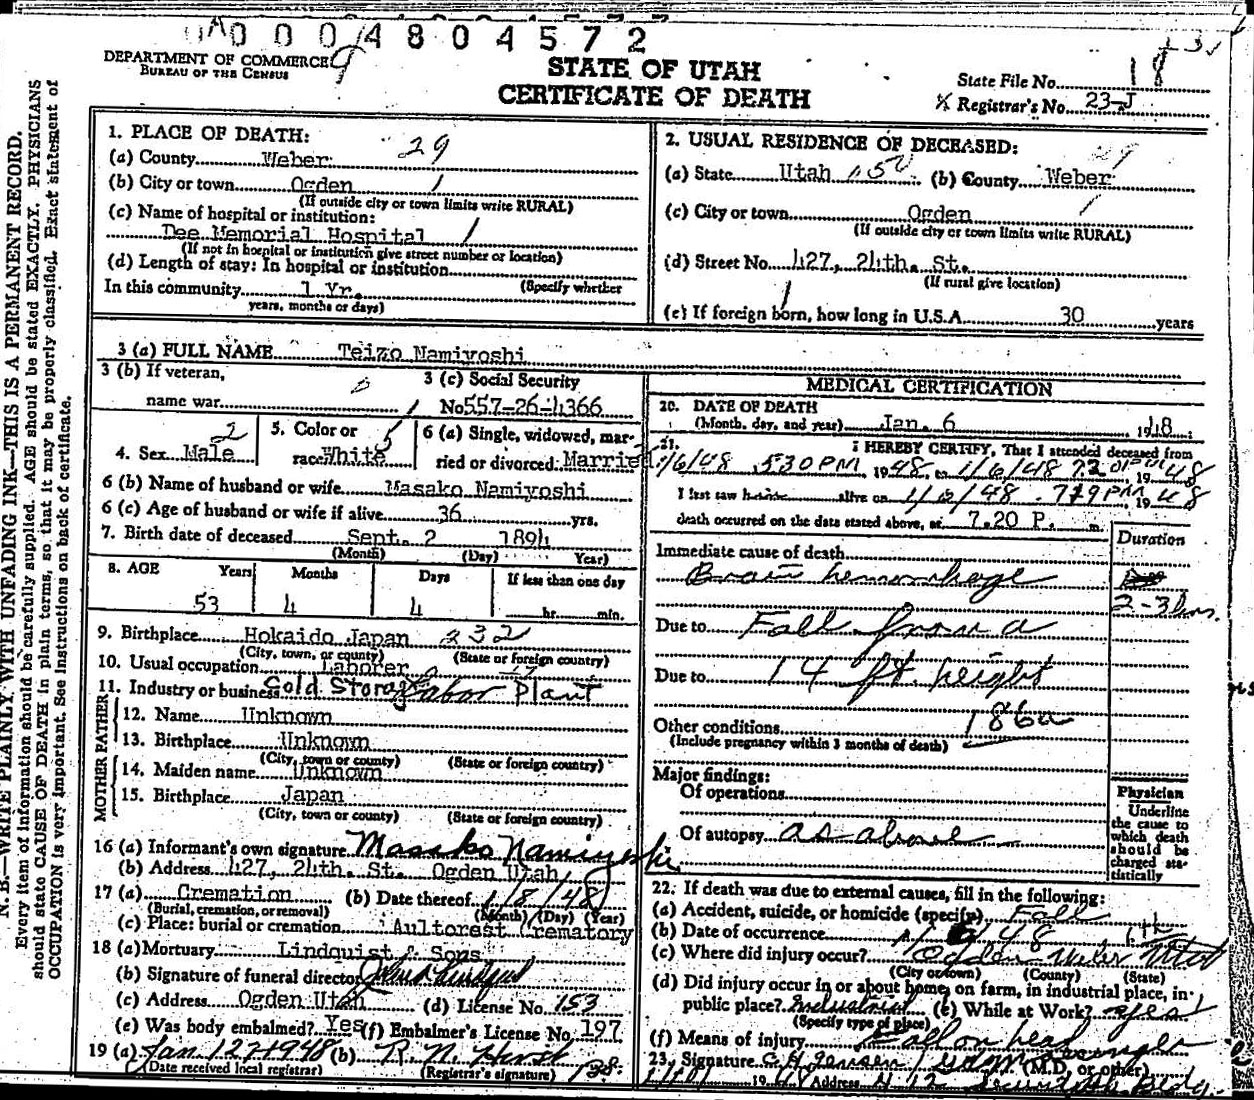 0004804572
DEPARTMENT OF COMMERCE
BUREAU OF THE CENSUS
9
STATE OF UTAH
CERTIFICATE OF DEATH
State File No. 18
Registrar's No. 23-J
1. PLACE OF DEATH: 29
(a) County Weber
(b) City or town Ogden 1
(If outside city or town limits write RURAL)
(c) Name of hospital or institution:
Dee Memorial Hospital 1
(If not in hospital or institution give street number or location)
(d) Length of stay: In hospital or institution
(Specify whether
In this community 1 Yr.
years, months or days)
2. USUAL RESIDENCE OF DECEASED:
29
(a) State Utah (b) County Weber
(c) City or town Ogden 1
(If outside city or town limits write RURAL)
(d) Street No. 427, 24th. St.
(If rural give location)
(e) If foreign born, how long in U.S.A. 30 years
3 (a) FULL NAME Teizo Namiyoshi
3 (b) If veteran,
name war
3 (c) Social Security
No. 557-26-4366
4. Sex Male 2
5. Color or
race White 5
6 (a) Single, widowed, mar-
ried or divorced: Marrie
6 (b) Name of husband or wife Masako Namiyoshi
6 (c) Age of husband or wife if alive 36 yrs.
7. Birth date of deceased Sept. 2 1894
(Month) (Day) Year)
8. AGE Years Months Days If less than one day
53 4 4 hr. min.
9. Birthplace Hokaido Japan 232
(City, town, or county) (State or foreign country)
10. Usual occupation Laborer
11. Industry or business Cold Storage Labor Plant
FATHER
12. Name Unknown
13. Birthplace Unknown
(City, town or county) (State or foreign country)
MOTHER
14. Maiden name Unknown
15. Birthplace Japan
(City, town or county) (State or foreign country)
16 (a) Informant's own signature Masako Namiyoshi
(b) Address 427, 24th. St. Ogden Utah
17 (a) Cremation (b) Date thereof 1/8/48
(Burial, cremation, or removal) (Month) (Day) (Year)
(c) Place: burial or cremation Aultorest Crematory
18 (a) Mortuary Lindquist & Sons
(b) Signature of funeral director
(c) Address Ogden Utah (d) License No. 153
(e) Was body embalmed? Yes (f) Embalmer's License No. 197
19 (a) Jan 12, 1948 (b)
(Date received local registrar) (Registrar's signature)
MEDICAL CERTIFICATION
20. DATE OF DEATH
(Month, day, and year) Jan. 6 1948
21. I HEREBY CERTIFY, That I attended deceased from
1/6/48 5:30 PM 1948, to 1/6/48 1948
I last saw alive on 1/6/48 7:19 PM 1948
death occurred on the date stated above, at 7.20 P. m.
Duration
Immediate cause of death
Brain hemorrhage
2-3 hrs.
Due to Fall from a
Due to 14 ft. height
Other conditions 186a
(Include pregnancy within 3 months of death)
Major findings:
Of operations
Of autopsy as above
Physician
Underline
the cause to
which death
should be
charged sta-
tistically
22. If death was due to external causes, fill in the following:
(a) Accident, suicide, or homicide (specify) Fall
(b) Date of occurrence 1/6/48
(c) Where did injury occur? Ogden Weber Utah
(City or town) (County) (State)
(d) Did injury occur in or about home, on farm, in industrial place, in
public place? Industrial (e) While at Work? yes
(Specify type of place)
(f) Means of injury Fall on head
23. Signature C H Jensen (M.D. or other)
1948 Address 412
N. B.—WRITE PLAINLY, WITH UNFADING INK—THIS IS A PERMANENT RECORD.
Every item of information should be carefully supplied. AGE should be stated EXACTLY. PHYSICIANS
should state CAUSE OF DEATH in plain terms, so that it may be properly classified. Exact statement of
OCCUPATION is very important. See instructions on back of certificate.